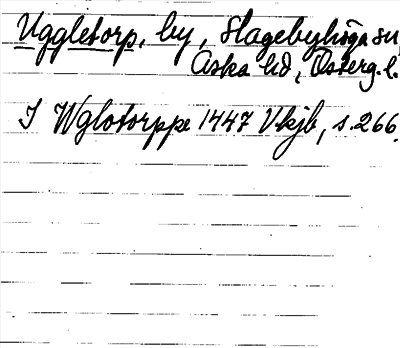 Uggletorp, by, Hagebyhöga sn,
Aska hd, Österg. l.
I Wglotorppe 1447 Vkjb, s. 266.